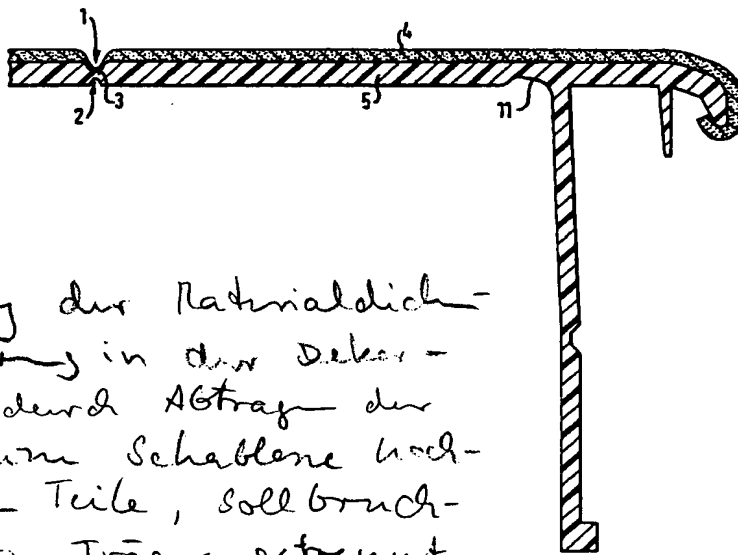 1
4
2
3
5
11
der Materialdich-
in der Dekor-
durch Abtragen der
Schablone hoch-
Teile, Sollbruch-
getrennt